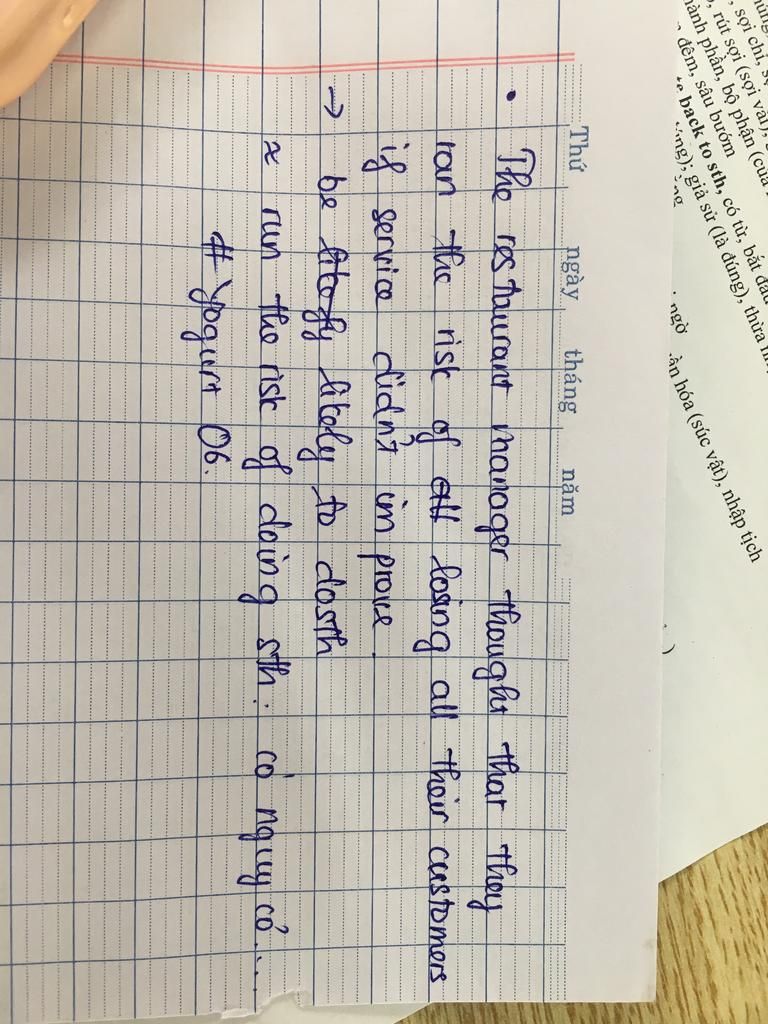 Thứ ngày tháng năm
• The restaurant manager thought that they
ran the risk of all losing all their customers
if service didn't improve.
→ be likely likely to do sth
≈ run the risk of doing sth: có nguy cơ....
# yogurt 06.
, sợi chỉ, s
, rút sợi (sợi vải),
hành phần, bộ phận (của
đêm, sâu bướm
te back to sth, có từ, bắt đầu
giả sử (là đúng), thừa n
ngờ
ần hóa (súc vật), nhập tịch